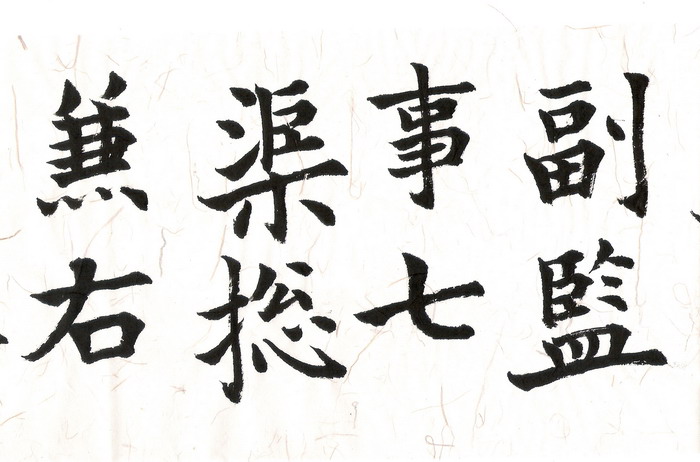 副監
事七
渠揔
兼右